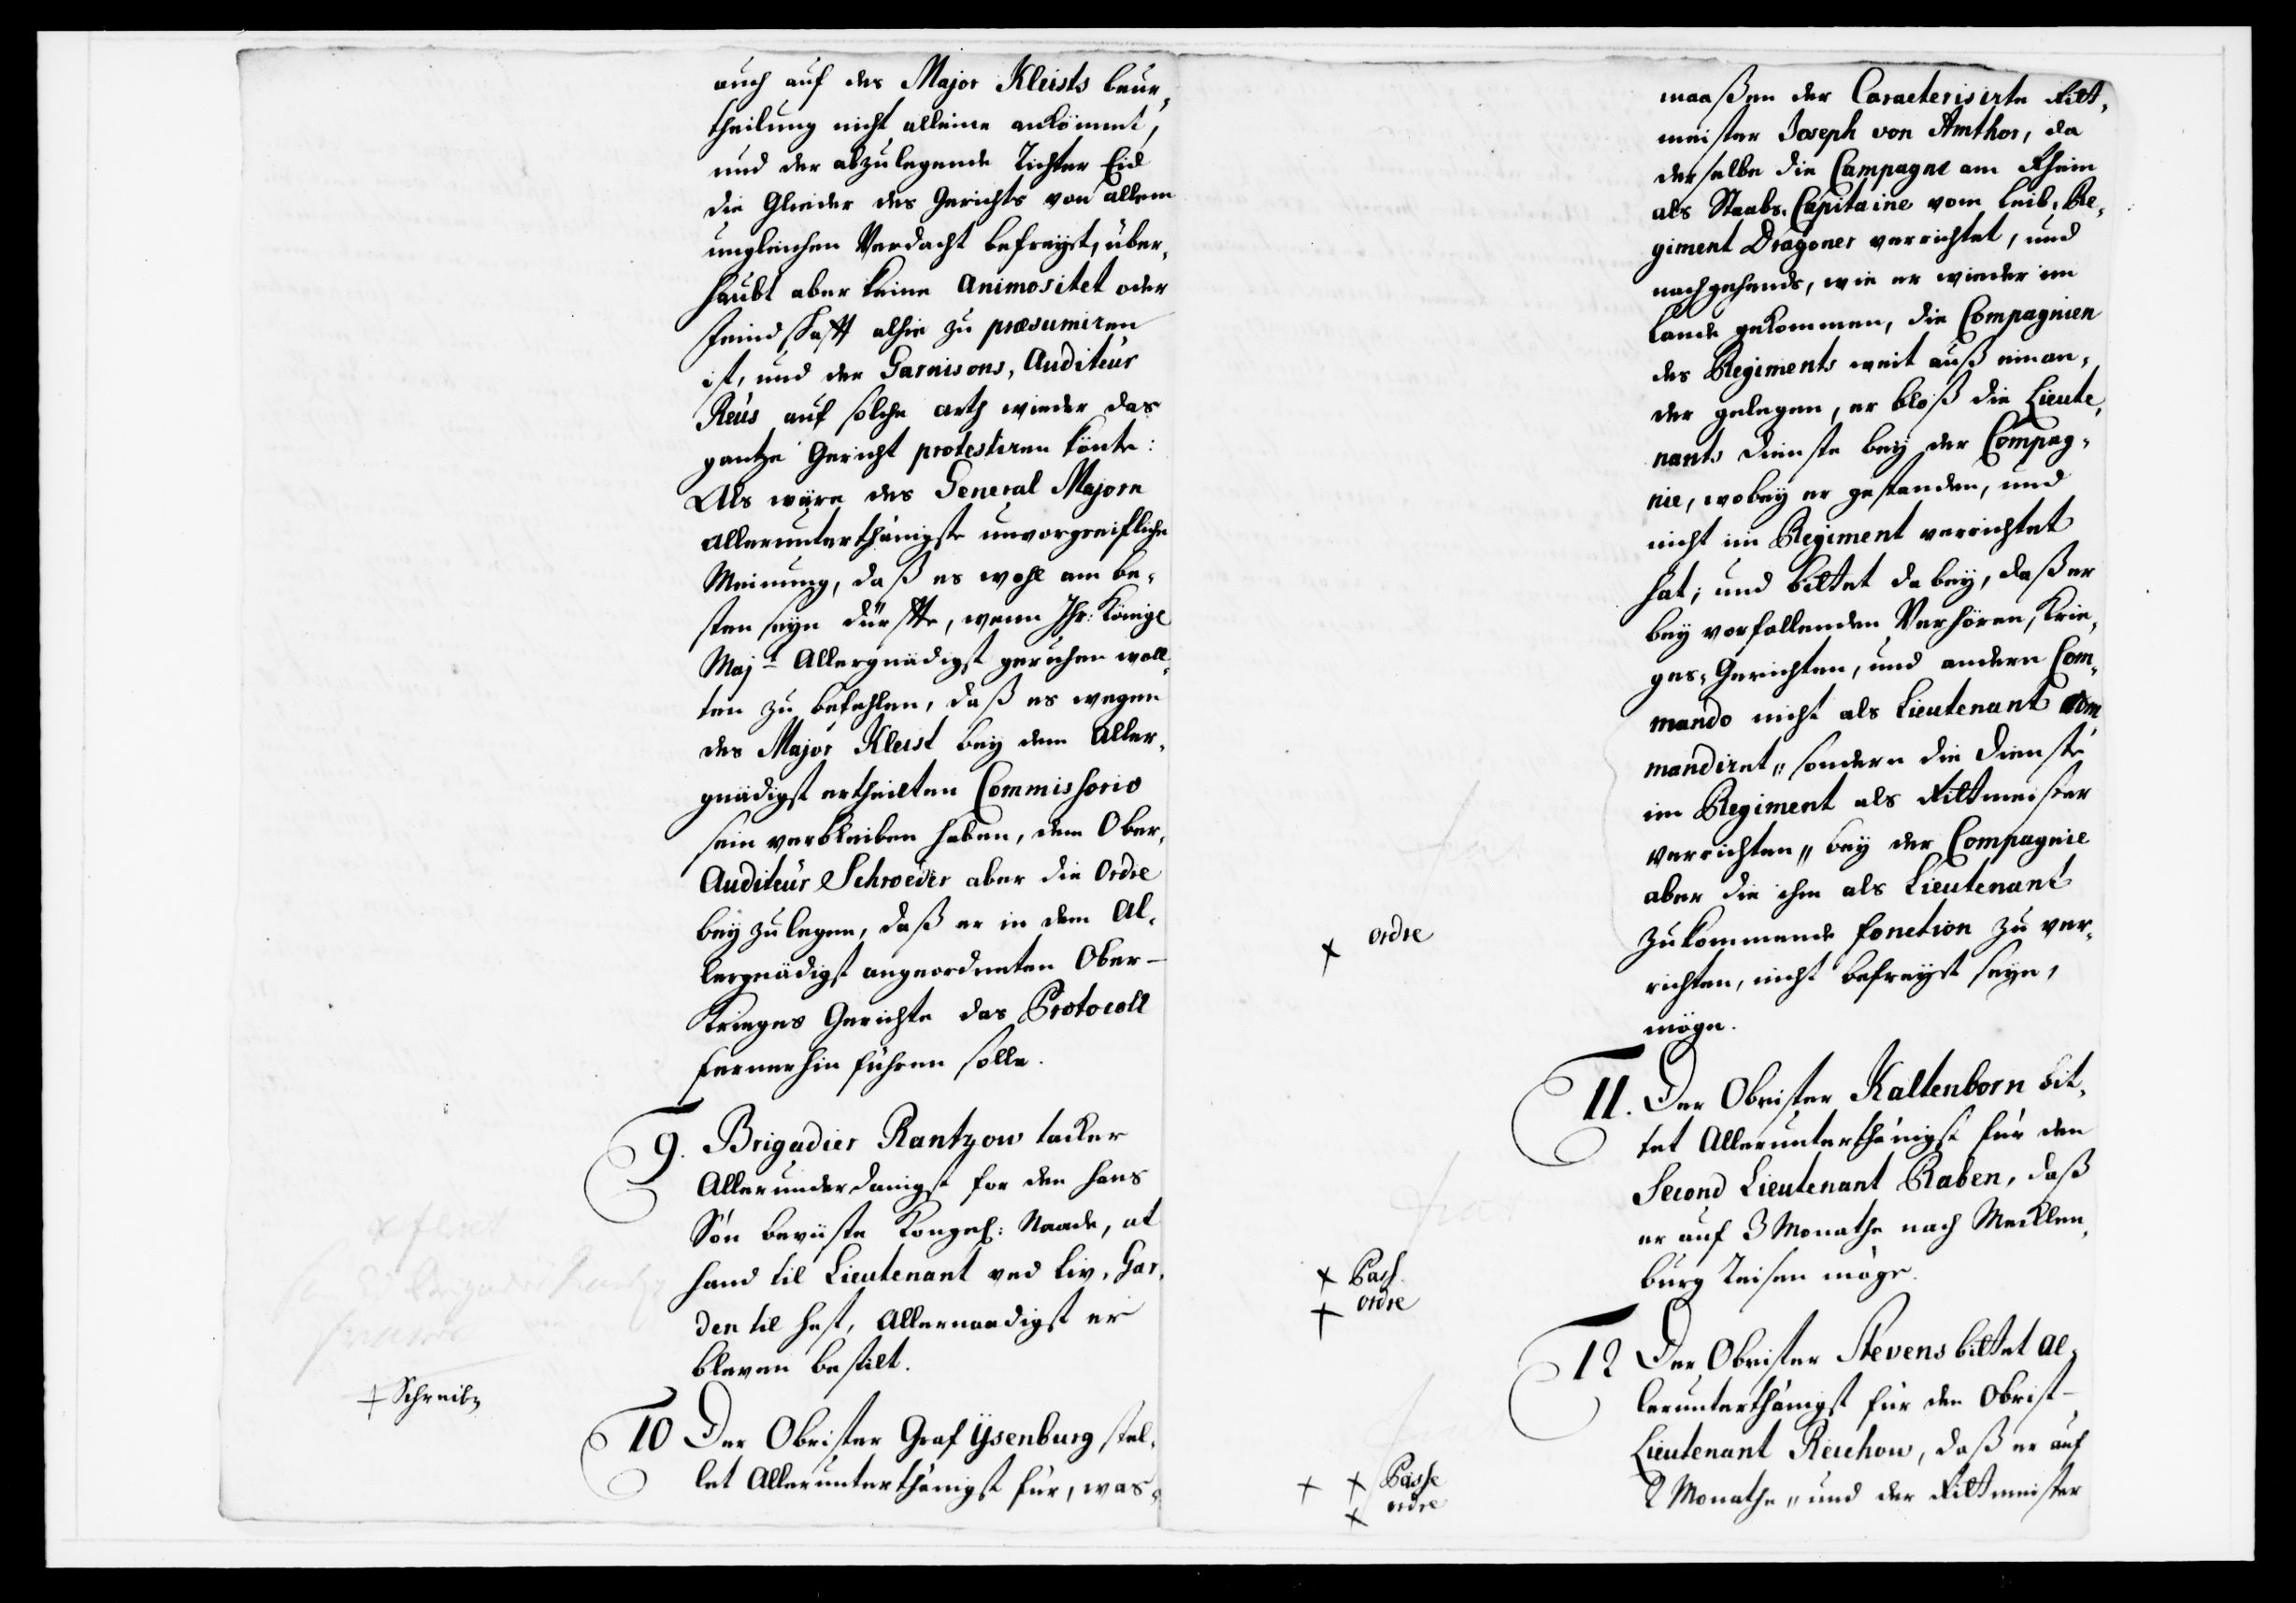 auch auf des Major Kleists beur¬
theilung nicht alleine ankömmt,
und der abzulegende Richter Eid
die Glieder des Gerichts von allem
ungleichen Verdacht befreyet, über¬
haubt aber keine Animositet oder
Feindschafft alhie zu præsumiren
ist, und der Garnisons, Auditeur
Reus auf solche arth wieder das
gantze Gericht protestiren könte:
Als wäre des General Majorn
allerunterthänigste unvorgreifliche
Meinung, daß es wohl am be¬
sten seyn dürffte, wenn Ihr: Königl
Majt Allergnädigst geruhen woll¬
ten zu befehlen, daß es wegen
des Major Kleist bey dem Aller¬
gnädigst ertheilten Commissorio
sein verbleiben haben, dem Ober¬
Auditeur Schroeder aber die Ordre
beyzulegen, daß er in dem Al¬
lergnädigst angeordneten Ober-
Krieges Gerichte das Protocoll
fernerhin führen solle.
9. Brigadier Rantzow tacker
Allerunderdanigst for den hans
Sön beviiste Kongel: Naade, at
hand til Lieutenant ved Liv, Gar¬
den til Hest, Allernaadigst er
bleven bestilt.
‡ Schreib
10 Der Obrister Graf Ysenburg stel¬
let Allerunterthänigst für, was¬
maaßen der Caracterisirte Ritt¬
meister Joseph von Amthor, da
derselbe die Campagne am Rhein
als Staabs-Capitaine vom Leib, Re¬
giment Dragoner verrichtet, und
nachgehends, wie er wieder im
Lande gekommen, die Compagnien
des Regiments weit auß einan¬
der gelegen, er bloß die Lieute¬
nants Dienste bey der Compag¬
nie, wobey er gestanden, und
nicht im Regiment verrichtet
hat; und bittet dabey, daß er
bey vorfallenden Verhören, Krie¬
ges-Gerichten, und andern Com¬
mando nicht als Lieutenant com
mandiret, sondern die Dienste
im Regiment als Rittmeister
verrichten, bey der Compagnie
aber die ihm als Lieutenant
zukommende fonction zu ver¬
richten, nicht befreyet seyn,
möge.
x ordre
11. Der Obrister Kaltenborn bit¬
tet Allerunterthänigst für den
Second Lieutenant Raben, daß
er auf 3 Monathe nach Mecklen¬
burg reisen möge.
x Pass.
x ordre
12 Der Obrister Stevens bittet al¬
lerunterthänigst für den Obrist-
Lieutenant Reichow, daß er auf
2 Monathe, und der Rittmeister
x x Passe
x ordre